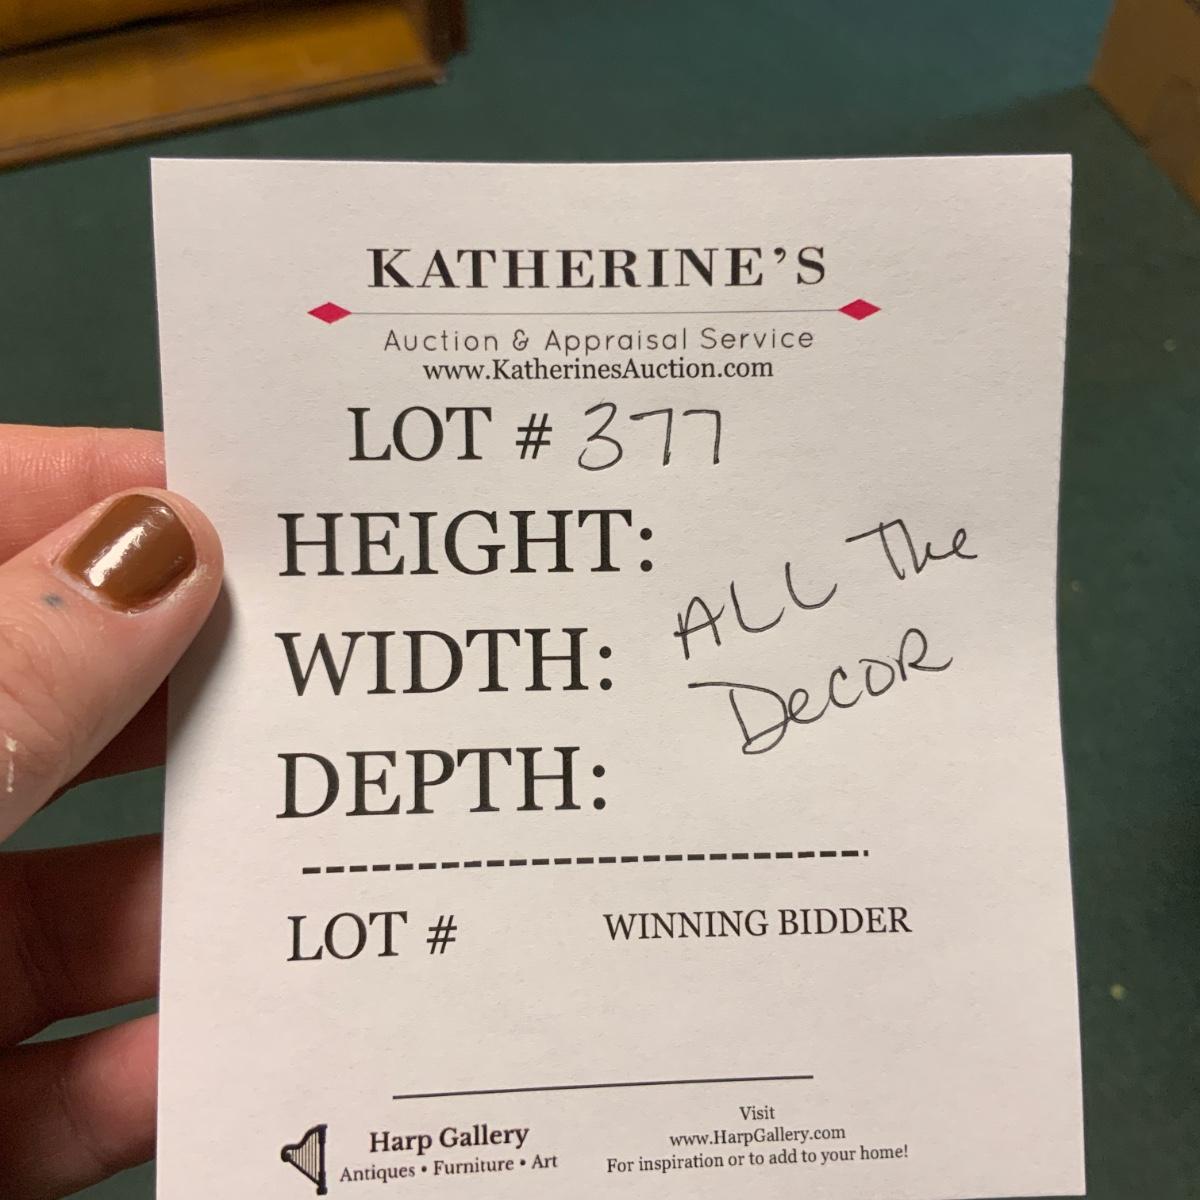 KATHERINE'S
Auction & Appraisal Service
www.KatherinesAuction.com
LOT # 377
HEIGHT:
WIDTH:
DEPTH:
ALL The
DecoR
LOT #
WINNING BIDDER
Harp Gallery
Antiques • Furniture • Art
Visit
www.HarpGallery.com
For inspiration or to add to your home!